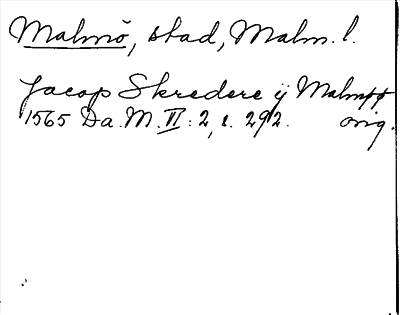 Malmö, stad, Malm. l.
Jacop Skredere ij Malmøø
1565 Da. M. II: 2, s. 292. orig.